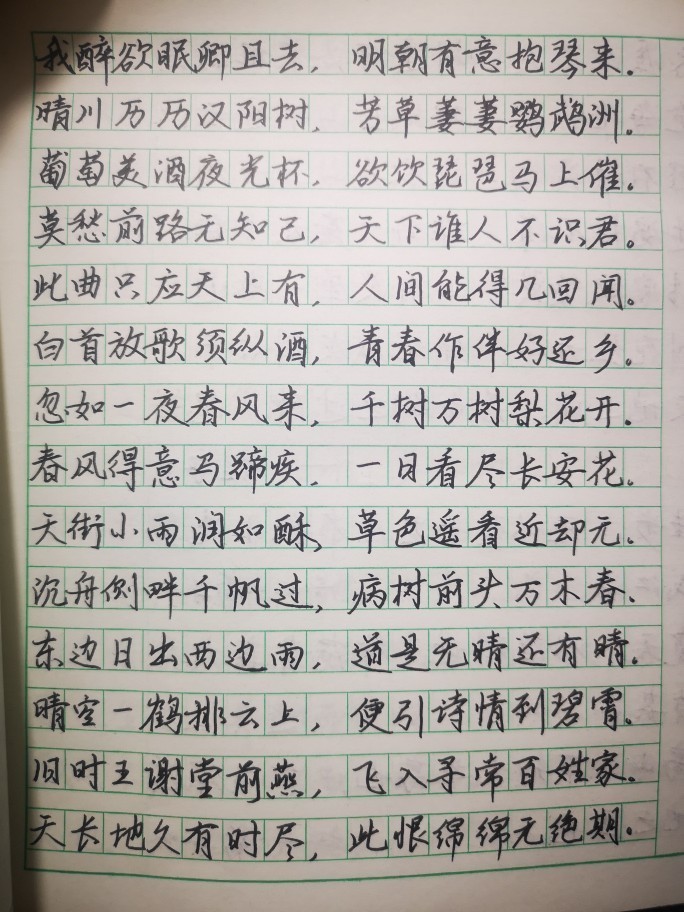 我醉欲眠卿且去，明朝有意抱琴来。
晴川历历汉阳树，芳草萋萋鹦鹉洲。
葡萄美酒夜光杯，欲饮琵琶马上催。
莫愁前路无知己，天下谁人不识君。
此曲只应天上有，人间能得几回闻。
白首放歌须纵酒，青春作伴好还乡。
忽如一夜春风来，千树万树梨花开。
春风得意马蹄疾，一日看尽长安花。
天街小雨润如酥，草色遥看近却无。
沉舟侧畔千帆过，病树前头万木春。
东边日出西边雨，道是无晴还有晴。
晴空一鹤排云上，便引诗情到碧霄。
旧时王谢堂前燕，飞入寻常百姓家。
天长地久有时尽，此恨绵绵无绝期。